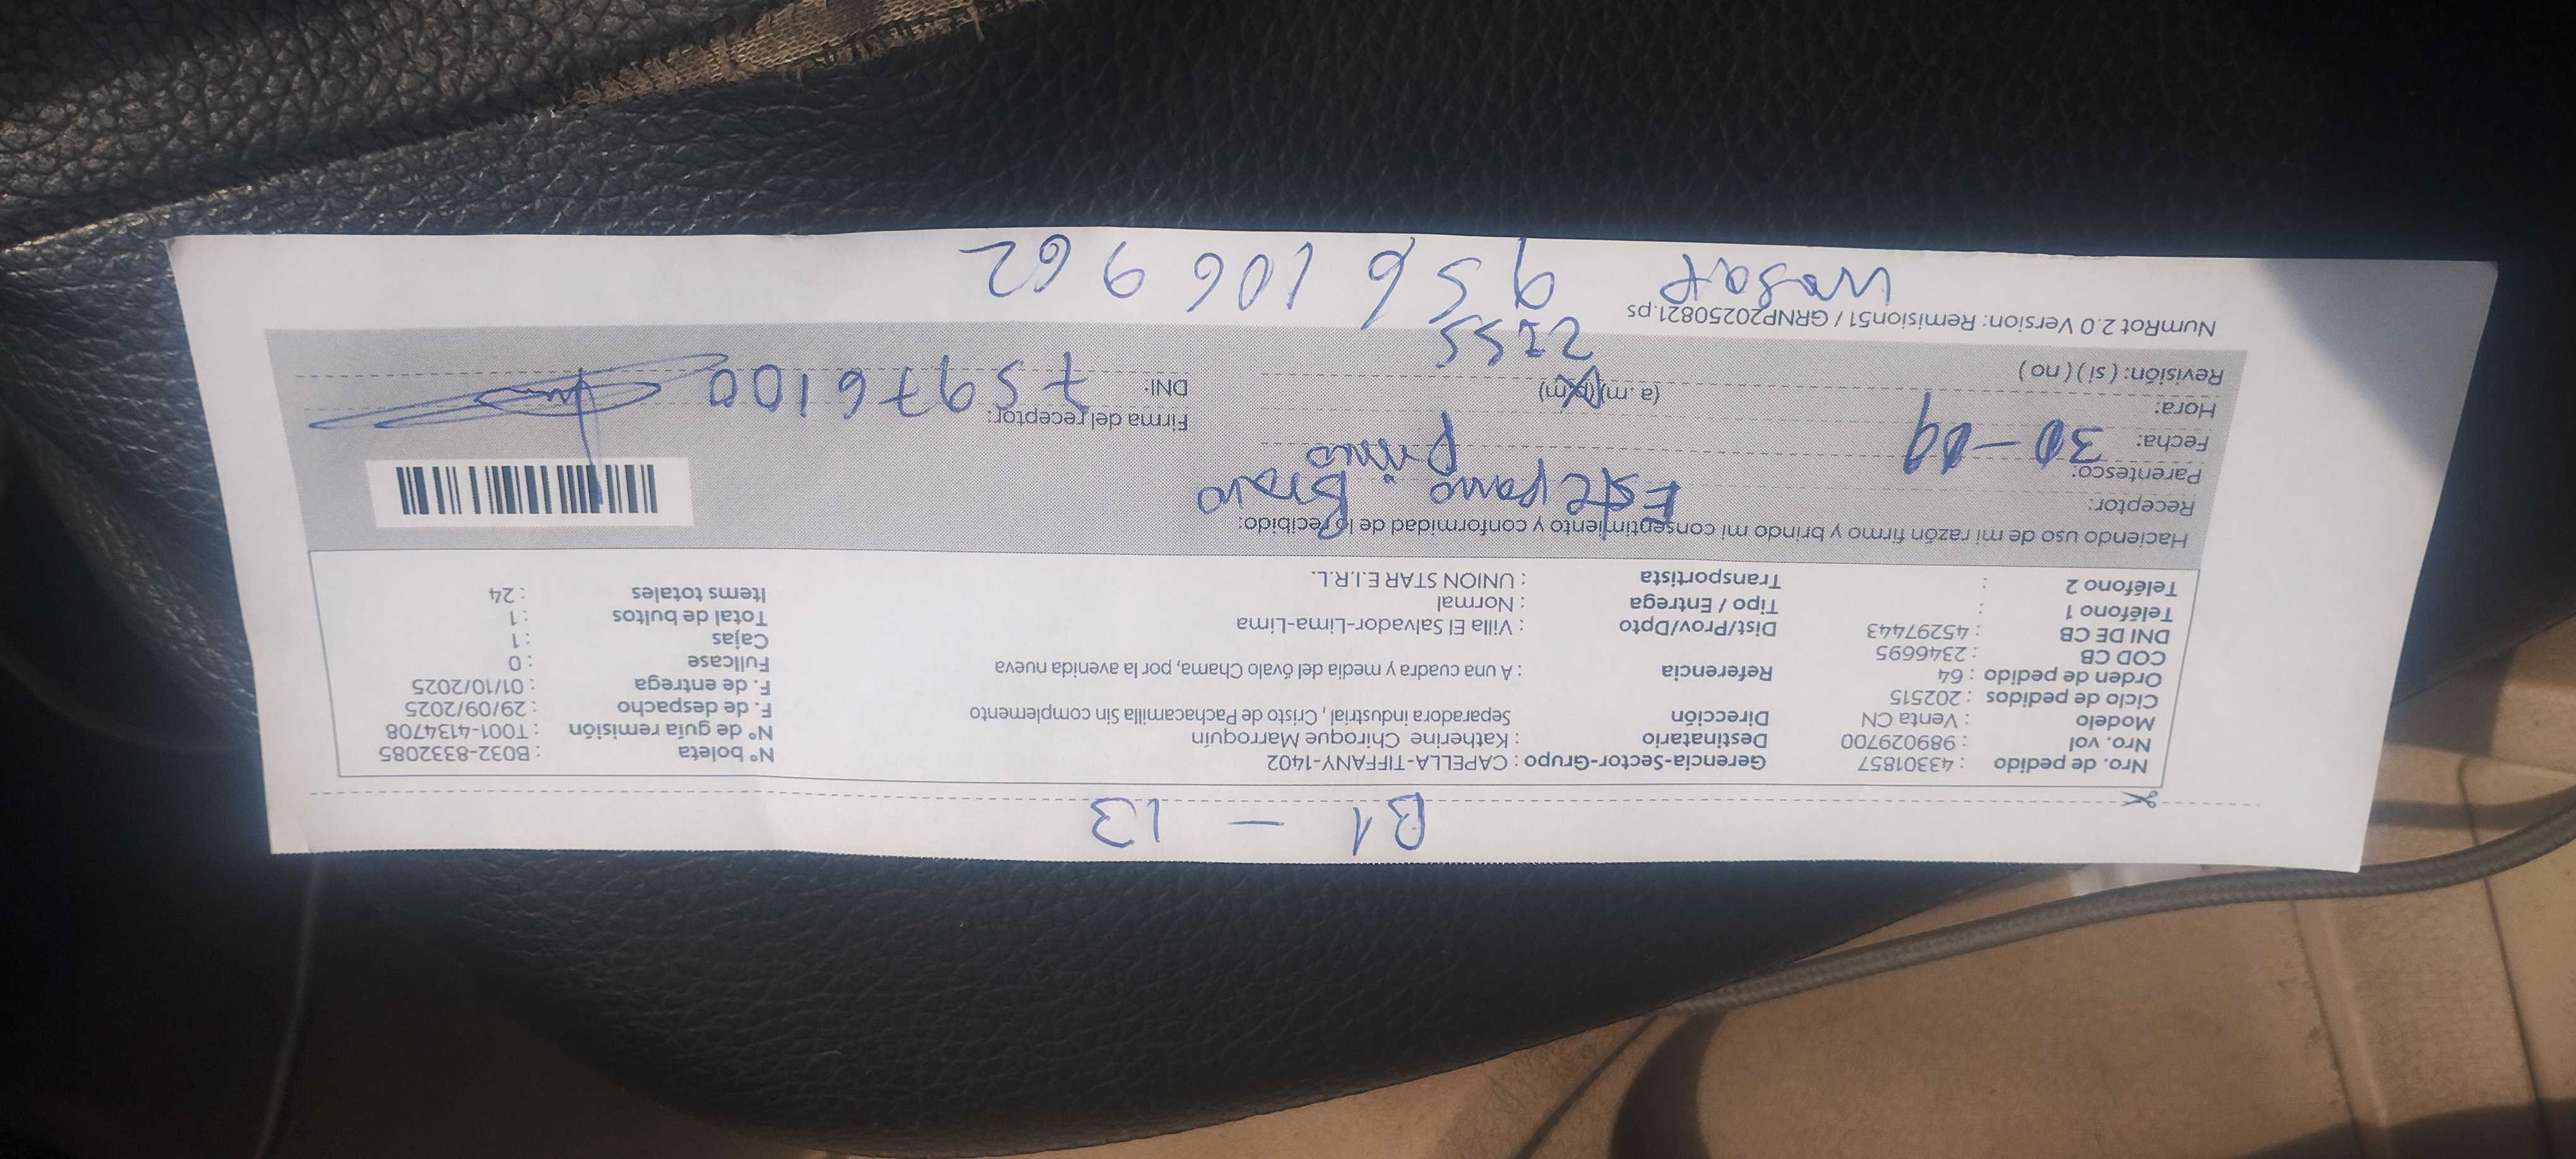 B1 - L3
Nro. de pedido : 43301857 Gerencia-Sector-Grupo : CAPELLA-TIFFANY-1402 N° boleta : B032-8332085
Nro. vol : 989029700 Destinatario : Katherine Chiroque Marroquín N° de guía remisión : T001-4134708
Modelo : Venta CN Dirección Separadora industrial , Cristo de Pachacamilla Sin complemento F. de despacho : 29/09/2025
Ciclo de pedidos : 202515 F. de entrega : 01/10/2025
Orden de pedido : 64 Referencia : A una cuadra y media del óvalo Chama, por la avenida nueva Fullcase : 0
COD CB : 2346695 Cajas : 1
DNI DE CB : 45297443 Dist/Prov/Dpto : Villa El Salvador-Lima-Lima Total de bultos : 1
Teléfono 1 : Tipo / Entrega : Normal Items totales : 24
Teléfono 2 : Transportista : UNION STAR E.I.R.L.
Haciendo uso de mi razón firmo y brindo mi consentimiento y conformidad de lo recibido:
Receptor: Estefano Bravo
Parentesco: primo
Fecha: 30-09 Firma del receptor:
Hora: (a.m) (p.m) DNI: 75976100
Revisión: ( si ) ( no )
NumRot 2.0 Version: Remision51 / GRNP20250821.ps
956 106 962